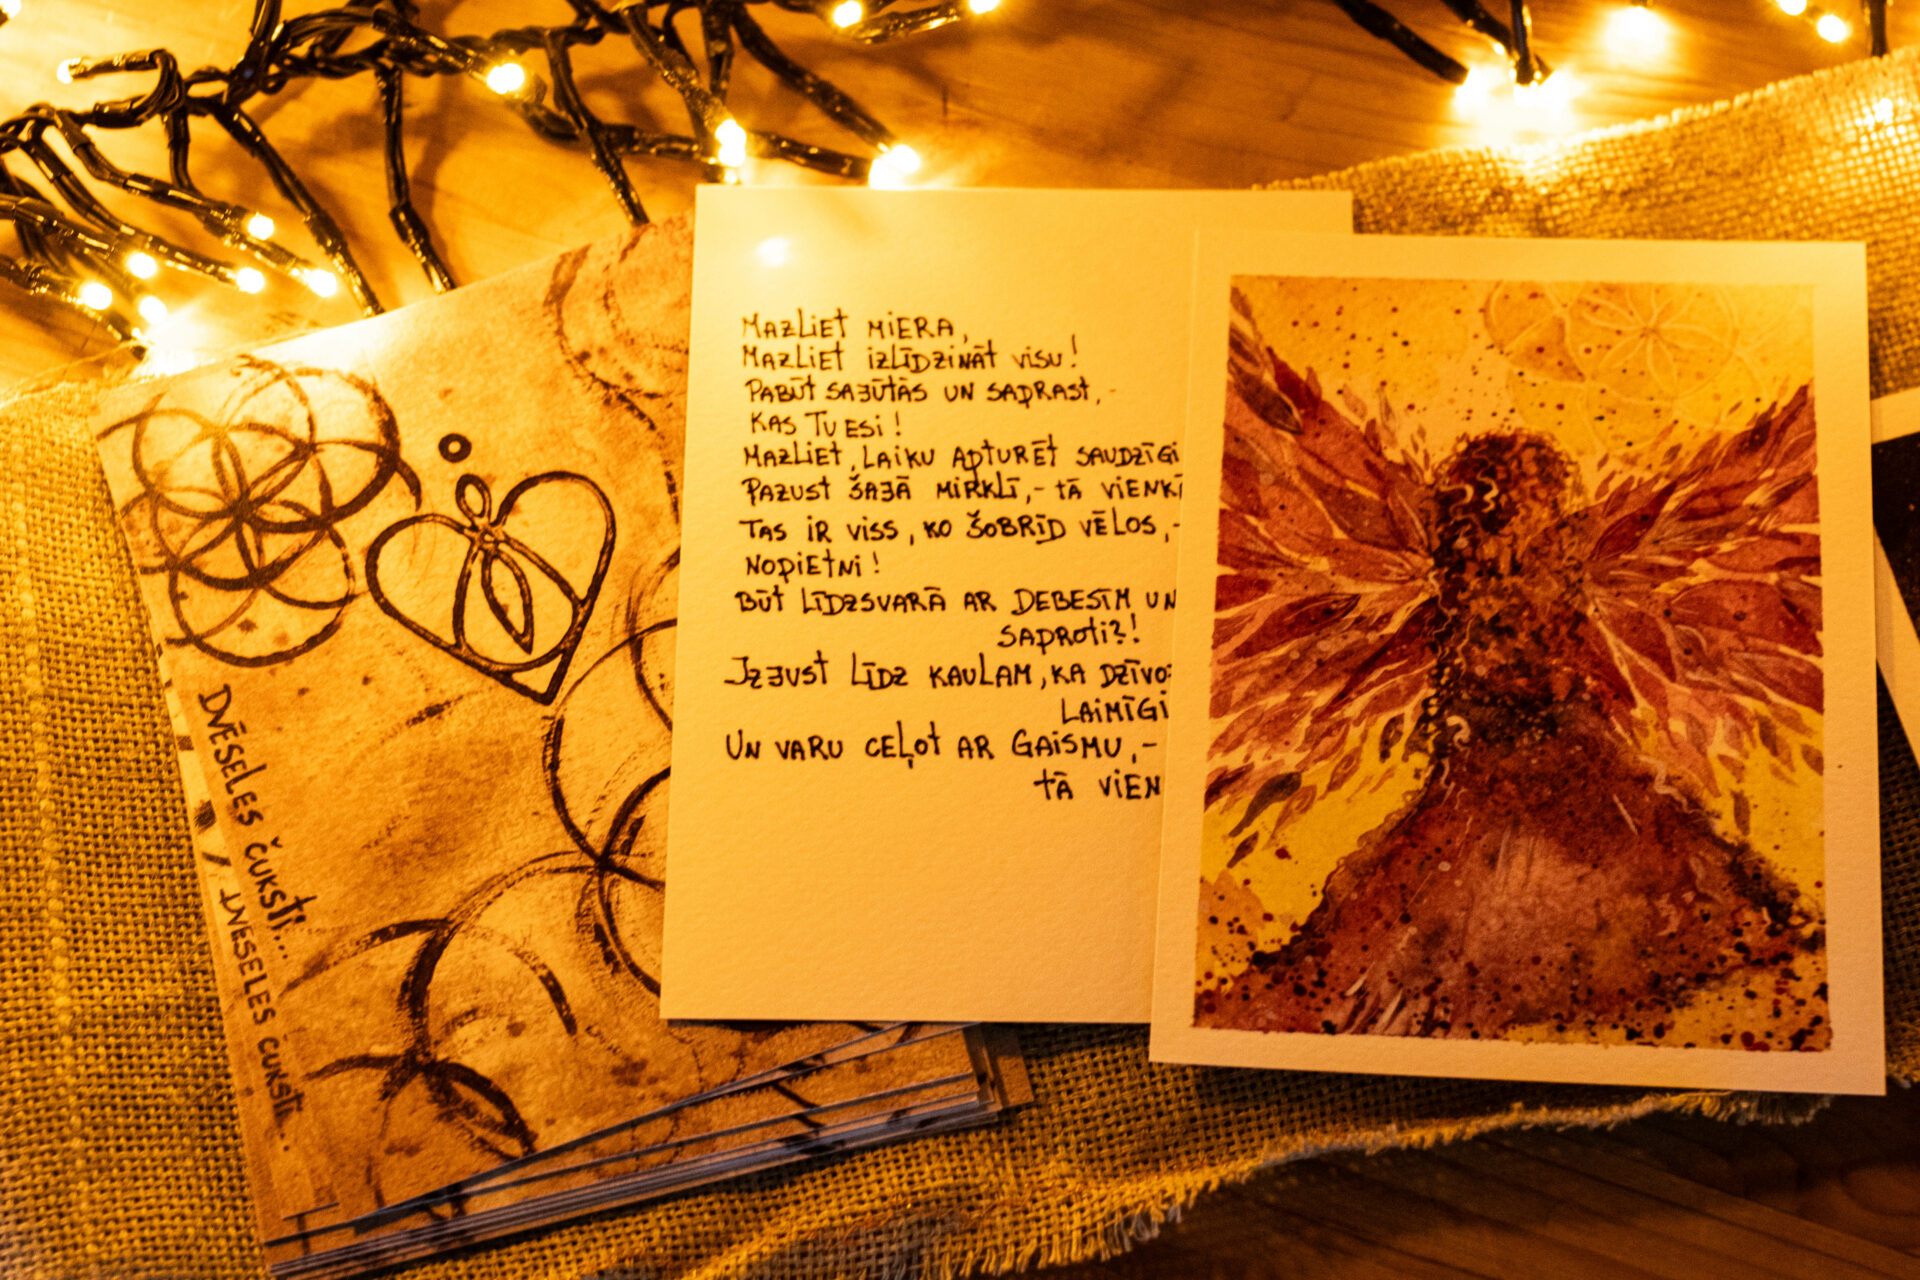 MAZLIET MIERA,
MAZLIET IZLĪDZINĀT VISU!
PABŪT SAJŪTĀS UN SAPRAST, -
KAS TU ESI!
MAZLIET, LAIKU APTURĒT SAUDZĪGI
PAZUST ŠAJĀ MIRKLĪ, - TĀ VIENKĀ
TAS IR VISS, KO ŠOBRĪD VĒLOS, -
NOPIETNI!
BŪT LĪDZSVARĀ AR DEBESĪM UN
SAPROTI?!
IZJUST LĪDZ KAULAM, KA DZĪVO
LAIMĪGI
UN VARU CEĻOT AR GAISMU, -
TĀ VIEN
DVĒSELES ČUKSTI...
DVĒSELES ČUKSTI...